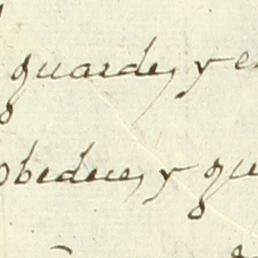 guarde, y
obedece, y que